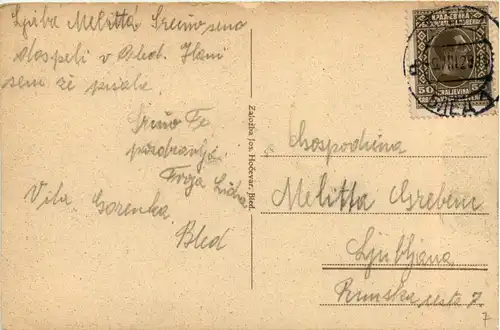 Ljuba Melitta! Srečno smo
dospeli v Bled. Hani
sem že pisala.
Srčno Te
pozdravlja
Tvoja Lida
Vila Gorenka
Bled
Založba Jos. Hočevar, Bled.
50
KRALJEVINA
BLED
Gospodična
Melitta Greben
Ljubljana
Rimska cesta 7
7